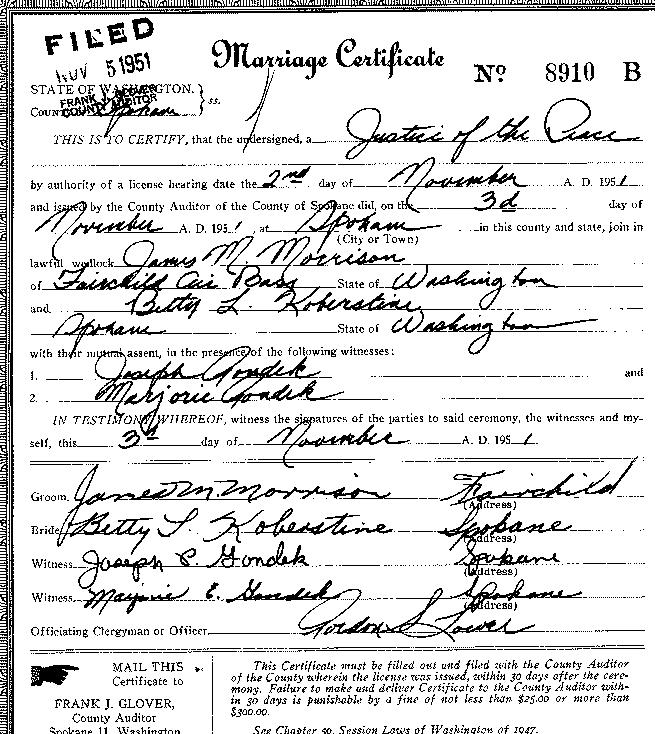 FILED
NOV 5 1951
FRANK J. GLOVER
COUNTY AUDITOR
Marriage Certificate
Nº 8910 B
STATE OF WASHINGTON. } ss.
County Spokane
THIS IS TO CERTIFY, that the undersigned, a Justice of the Peace
by authority of a license bearing date the 2nd day of November A. D. 1951
and issued by the County Auditor of the County of Spokane did, on the 3d day of
November A. D. 1951, at Spokane in this county and state, join in
(City or Town)
lawful wedlock James M. Morrison
of Fairchild Air Base State of Washington
and Betty L. Koberstine
Spokane State of Washington
with their mutual assent, in the presence of the following witnesses:
1. Joseph Gondek and
2. Marjorie Gondek
IN TESTIMONY WHEREOF, witness the signatures of the parties to said ceremony, the witnesses and my-
self, this 3d day of November A. D. 1951.
Groom James M. Morrison Fairchild
(Address)
Bride Betty L. Koberstine Spokane
(Address)
Witness Joseph P. Gondek Spokane
(Address)
Witness Marjorie E. Gondek Spokane
(Address)
Officiating Clergyman or Officer Gordon S Lower
MAIL THIS
Certificate to
FRANK J. GLOVER,
County Auditor
Spokane 11, Washington
This Certificate must be filled out and filed with the County Auditor
of the County wherein the license was issued, within 30 days after the cere-
mony. Failure to make and deliver Certificate to the County Auditor with-
in 30 days is punishable by a fine of not less than $25.00 or more than
$300.00.
See Chapter 59, Session Laws of Washington of 1947.